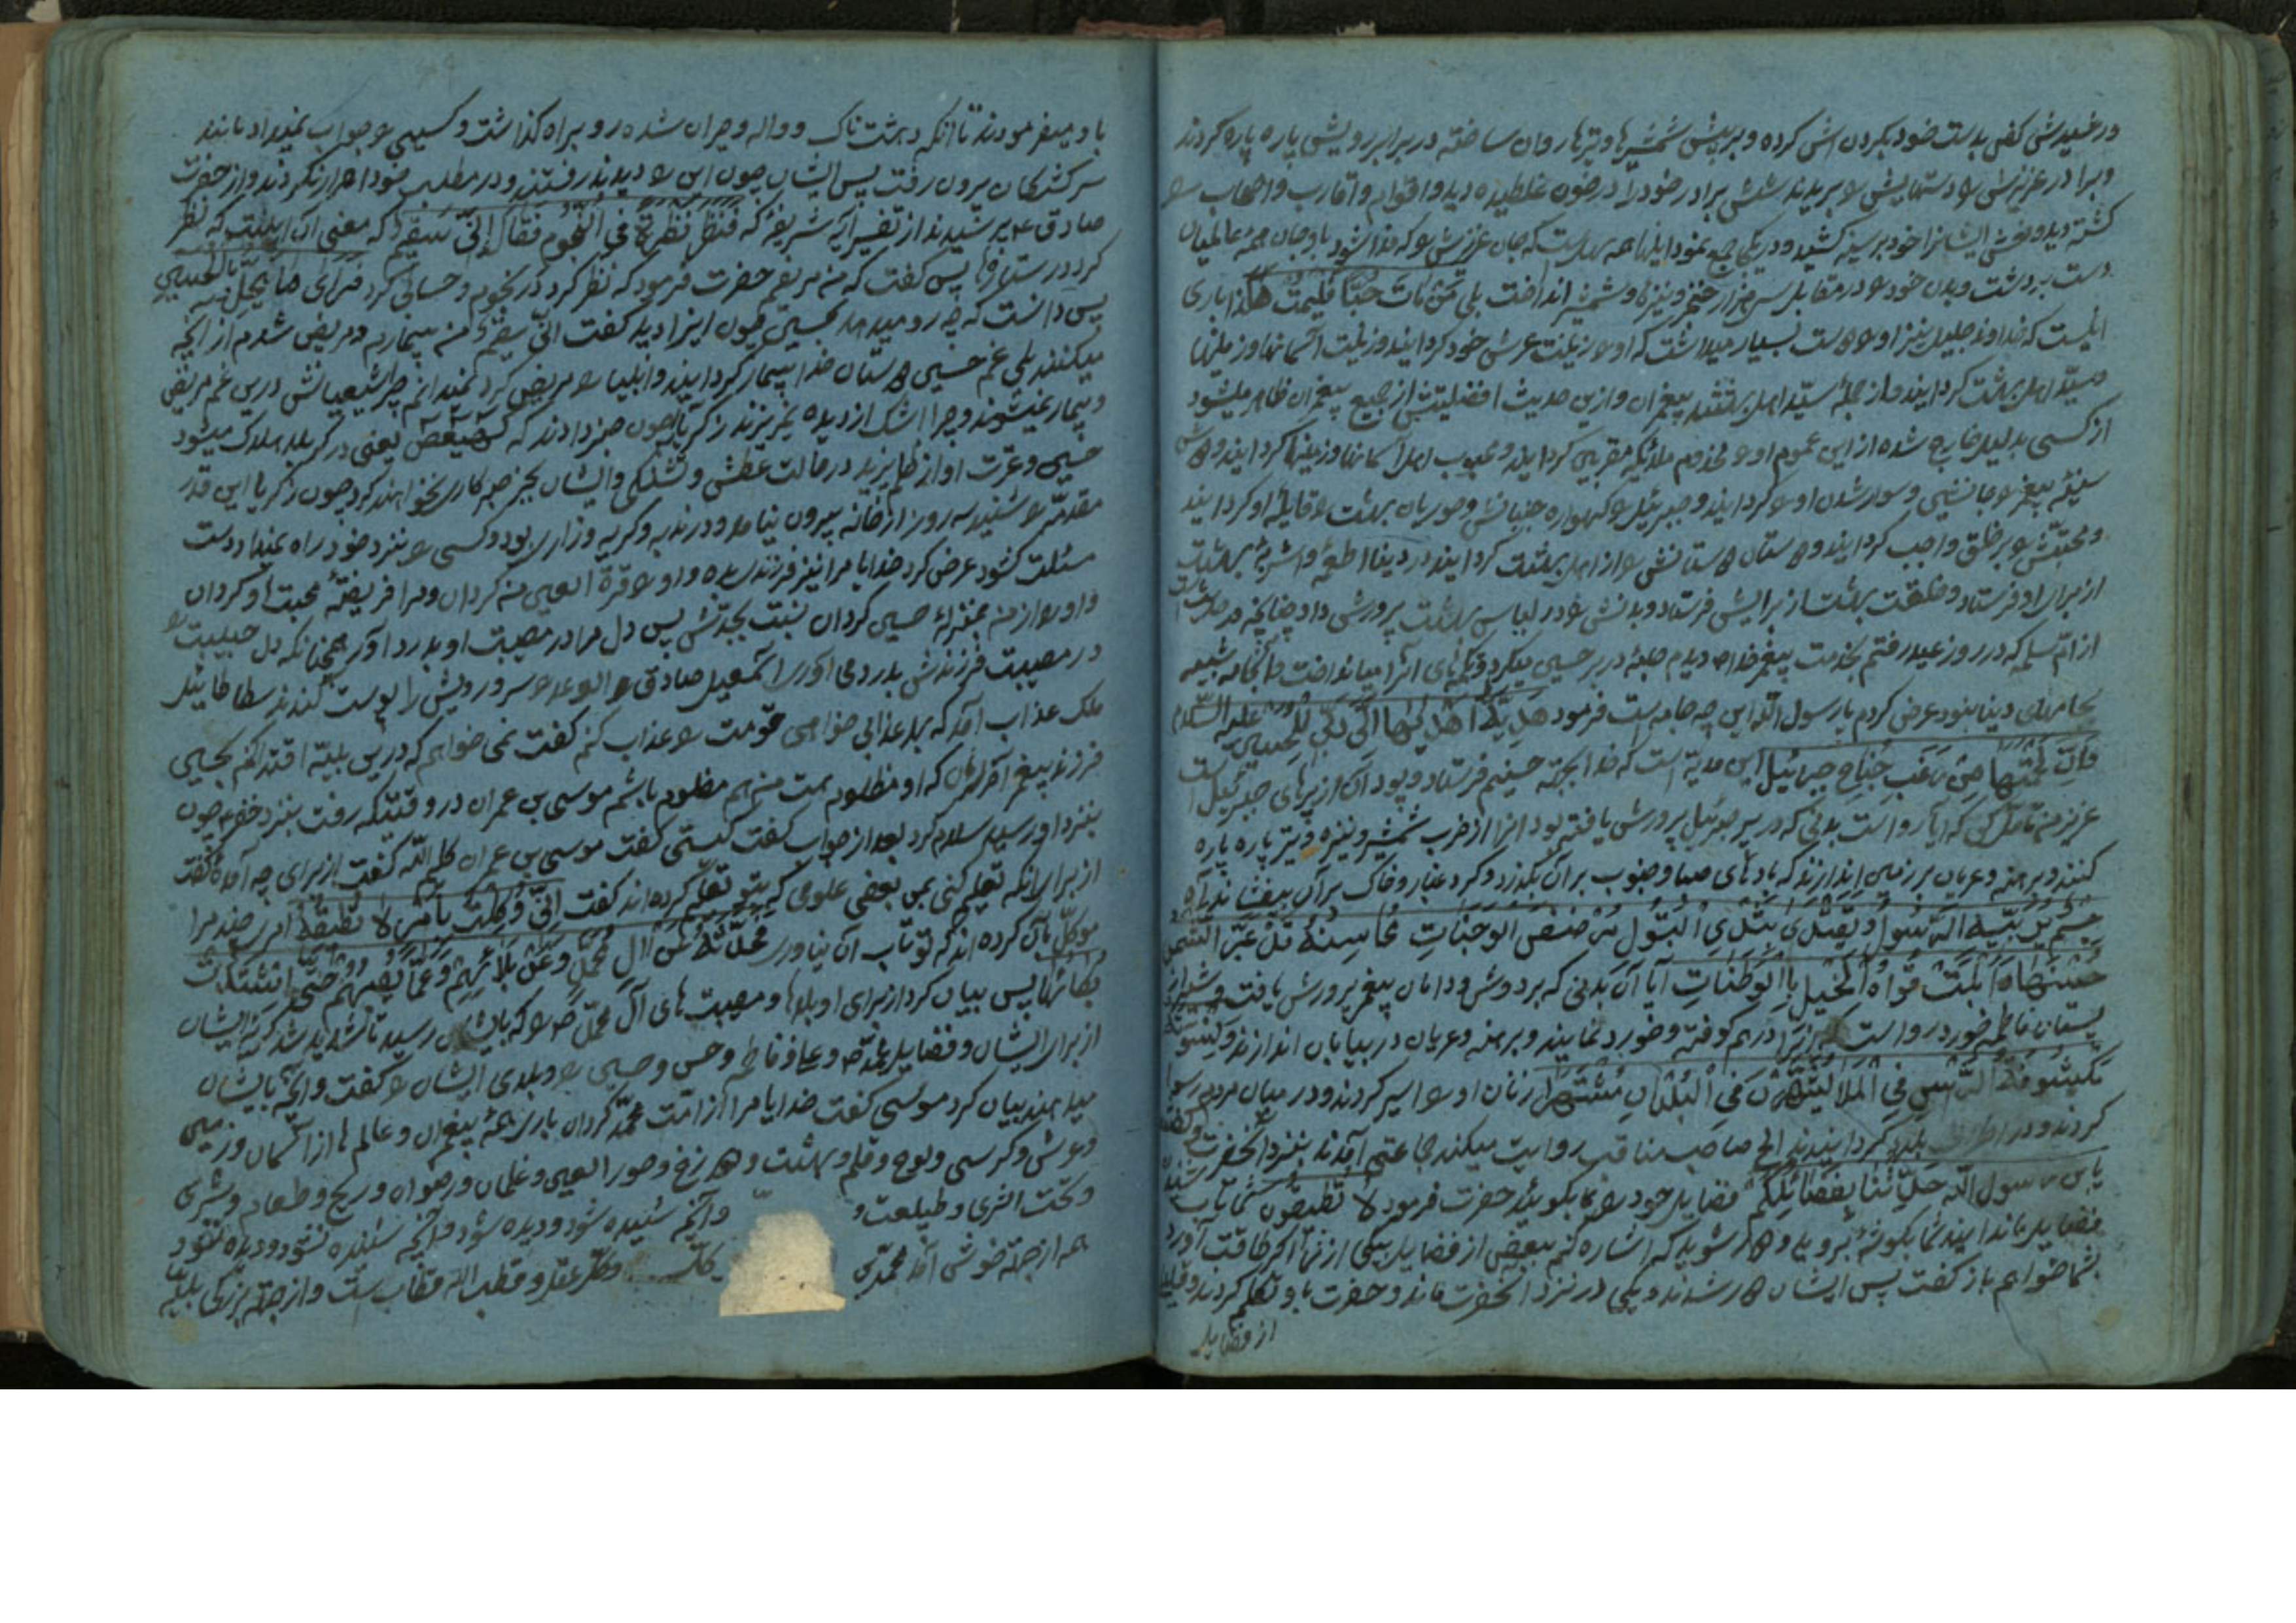 ورشیدش کفن بدست خود بکردن اش کرده و برپیش شمشیرها و تیرها روان ساخته در برابر رویش پاره پاره کردند
و برادر عزیزش را دستهایش را بریدند شش برادر خود را در خون غلطیده دید و اقوام و اقارب و اصحاب را
کشته دید و نعش ایشانرا خود بر سینه کشید و در یکجا جمع نمود اینها همه سهلست که جان عزیزش را که فدا شود باو جان همه عالمیان
دست برداشت و بدن خود را در مقابل سی هزار خنجر و نیزه و شمشیر انداخت بلی مَنْ مٰاتَ حُبّاً فَلْیَمُتْ هٰکَذا باری
که خداوند جلیل نیز او را دوست بسیار میداشت که او را زینت عرش خود گردانید و زینت آسمانها و زمینها
و سیّد اهل بهشت گردانید و از جملهٔ سیّد اهل بهشتند پیغمبران و ازین حدیث افضلیتش از جمیع پیغمبران ظاهر میشود
از کسی بدلیل خارج شده از این عموم او را مخدوم ملائکهٔ مقربین گردانید و محبوب اهل آسمانها و زمینها گردانید و دوش
سینهٔ پیغمبر را جانشین و سوار شدن او را گردانید و جبرئیل را گهواره جنبانش و حوریان بهشت را قابلهٔ او گردانید
و محبّتش را بر خلق واجب گردانید و دوستان دوستانش را از اهل بهشت گردانید در دنیا اطعمه و اشربهٔ بهشت
از برای او فرستاد و خلقت بهشت از برایش فرستاد و بدنش را در لباس بهشت پرورش داد چنانچه در حدیث است
از امّ سلمه که در روز عید رفتم بخدمت پیغمبر خدا ص دیدم جامهٔ در بر حسین میکرد و تکمه‌های آنرا میانداخت و آنجامه شبیه
بجامه‌های دنیا نبود عرض کردم یا رسول الله این چه جامه است فرمود هٰذِهِ هَدِیَّةٌ اَهْدٰیهٰا اِلَیَّ رَبّی لِلْحُسَیْنِ علیه السّلام
لُحْمَتَهٰا مِنْ زَغَبِ جَنٰاحِ جبرائیل این هدیه است که خدا بجهة حسینم فرستاد و پود آن از پرهای جبرئیل است
عزیز من تأمّل کن که آیا رواست بدنی که در پر جبرئیل پرورش یافته بود آنرا از ضرب شمشیر و نیزه و تیر پاره پاره
کنند و برهنه و عریان بر زمین اندازند که بادهای صبا و جنوب بر آن بگذرد و گرد غبار و خاک بر آن بیفشاند آه
جِسْمٌ یُرَبّیهِ الرَّسُولُ وَ یَغْتَذی بِثَدْیِ الْبَتُولِ
آیا آن بدنی که بر دوش و دامان پیغمبر پرورش یافت و شیر از
پستان فاطمه خورد رواست که آنرا درهم کوفته و خورد نمایند و برهنه و عریان در بیابان اندازند
زنان او را اسیر کردند و در میان مردم رسوا
کردند و در اطراف بلاد گردانیدند الخ صاحب مناقب روایت میکند جماعتی آمدند بنزد آنحضرت و گفتند
یابن رسول الله حَدِّثْنٰا بِفَضٰائِلِکُمْ فضایل خود را بما بگوئید حضرت فرمود لٰا تُطیقُونَ شما تاب شنیدن
فضایل ما ندارید شما بگوشهٔ بروید و دور شوید که اشاره کنم ببعضی از فضایل بیکی از شما اگر طاقت آورد
بشما خواهم باز گفت پس ایشان دور شدند و یکی در نزد آنحضرت ماند و حضرت باو تکلم کردند و
از فضایل
باو میفرمودند تا آنکه دهشت ناک و واله و حیران شده رو براه گذاشت و کسی را جواب نمیداد مانند
سرکشتگان بیرون رفت پس ایشان چون این را دیدند رفتند و در مطلب خود اصرار نکردند و از حضرت
صادق ع پرسیدند از تفسیر آیهٔ شریفه که فَنَظَرَ نَظْرَةً فِی النُّجُومِ فَقٰالَ اِنّی سَقیمٌ که معنی آن اینست که نظر
کرد در ستاره‌ها پس گفت که من مریضم حضرت فرمود که نظر کرد در نجوم و حسابی کرد فَرَأی مٰا یَحُلُّ بِالْحُسَیْنِ
پس دانست که چه رو میدهد بحسین چون اینرا دید گفت انّی سقیمٌ من بیمارم و مریض شدم از آنچه
میکنند بلی غم حسین دوستان خدا را بیمار گردانید و انبیا را مریض کرد نمیدانم چرا شیعیانش درین غم مریض
و بیمار نمیشوند و چرا اشک از دیده نمیریزند زکریا چون خبر دادند که کهیعص یعنی در کربلا هلاک میشود
حسین و عترت او از ظلم یزید در حالت عطش و تشنگی و ایشان بجز صبر کاری نخواهند کرد چون زکریا این قدر
مقدمه را شنید سه روز از خانه بیرون نیامد و در ندبه و گریه و زاری بود و کسی را بنزد خود راه نمیداد دست
مسئلت کشود عرض کرد خدایا مرا نیز فرزندی بده و او را قرّة العین من گردان و مرا فریفتهٔ محبت او گردان
و او را از من بمنزلهٔ حسین گردان نسبت بجدّش پس دل مرا در مصیبت او بدرد آور همچنانکه دل حبیبت را
در مصیبت فرزندش بدرد می‌آوری اسمعیل صادق الوعد را سر و رویش را پوست کندند سطاطائیل
ملک عذاب آمد که بهر عذابی خواهی قومت را عذاب کنم گفت نمی‌خواهم که درین بلیّه اقتدا کنم بحسین
فرزند پیغمبر آخرالزمان که او مظلوم است من هم مظلوم باشم موسی بن عمران در وقتیکه رفت بنزد خضر ع چون
بنزد او رسید سلام کرد بعد از جواب گفت کیستی گفت موسی بن عمران کلیم الله گفت از برای چه آمدهٔ گفت
از برای آنکه تعلیم کنی بمن بعضی علومی که بتو تعلیم کرده‌اند گفت اِنّی وُکِّلْتُ بِأَمْرٍ لٰا تُطیقُهُ امری چند مرا
موکل بآن کرده‌اند که تو تاب آن نیاوری حَدَّثَهُ عَنْ آلِ مُحَمَّدٍ وَ عَنْ بَلٰائِهِمْ وَ عَمّٰا یُصیبُهُمْ حَتّٰی اشْتَدَّتْ
بُکٰائُهُمٰا پس بیان کرد از برای او بلاها و مصیبت‌های آل محمد ص را که بایشان رسید تا شدید شد گریهٔ ایشان
از برای ایشان و فضایل محمد ص و علی و فاطمه و حسن و حسین را و بلای ایشان را گفت و آنچه بایشان
میدهند بیان کرد موسی گفت خدایا مرا از امّت محمّد گردان باری همه پیغمبران و عالم‌ها از آسمان و زمین
و عرش و کرسی و لوح و قلم و بهشت و دوزخ و حور العین و غلمان و رضوان و ریح و طعام و بشری
و تحت الثری و طبیعت و ... و آنچه شنیده شود و دیده شود و آنچه شنیده نشود و دیده نشود
همه از جهة خوشی آمد محمد ... فکر عقل و قطب ... است و از جهة بزرگی بلیّه